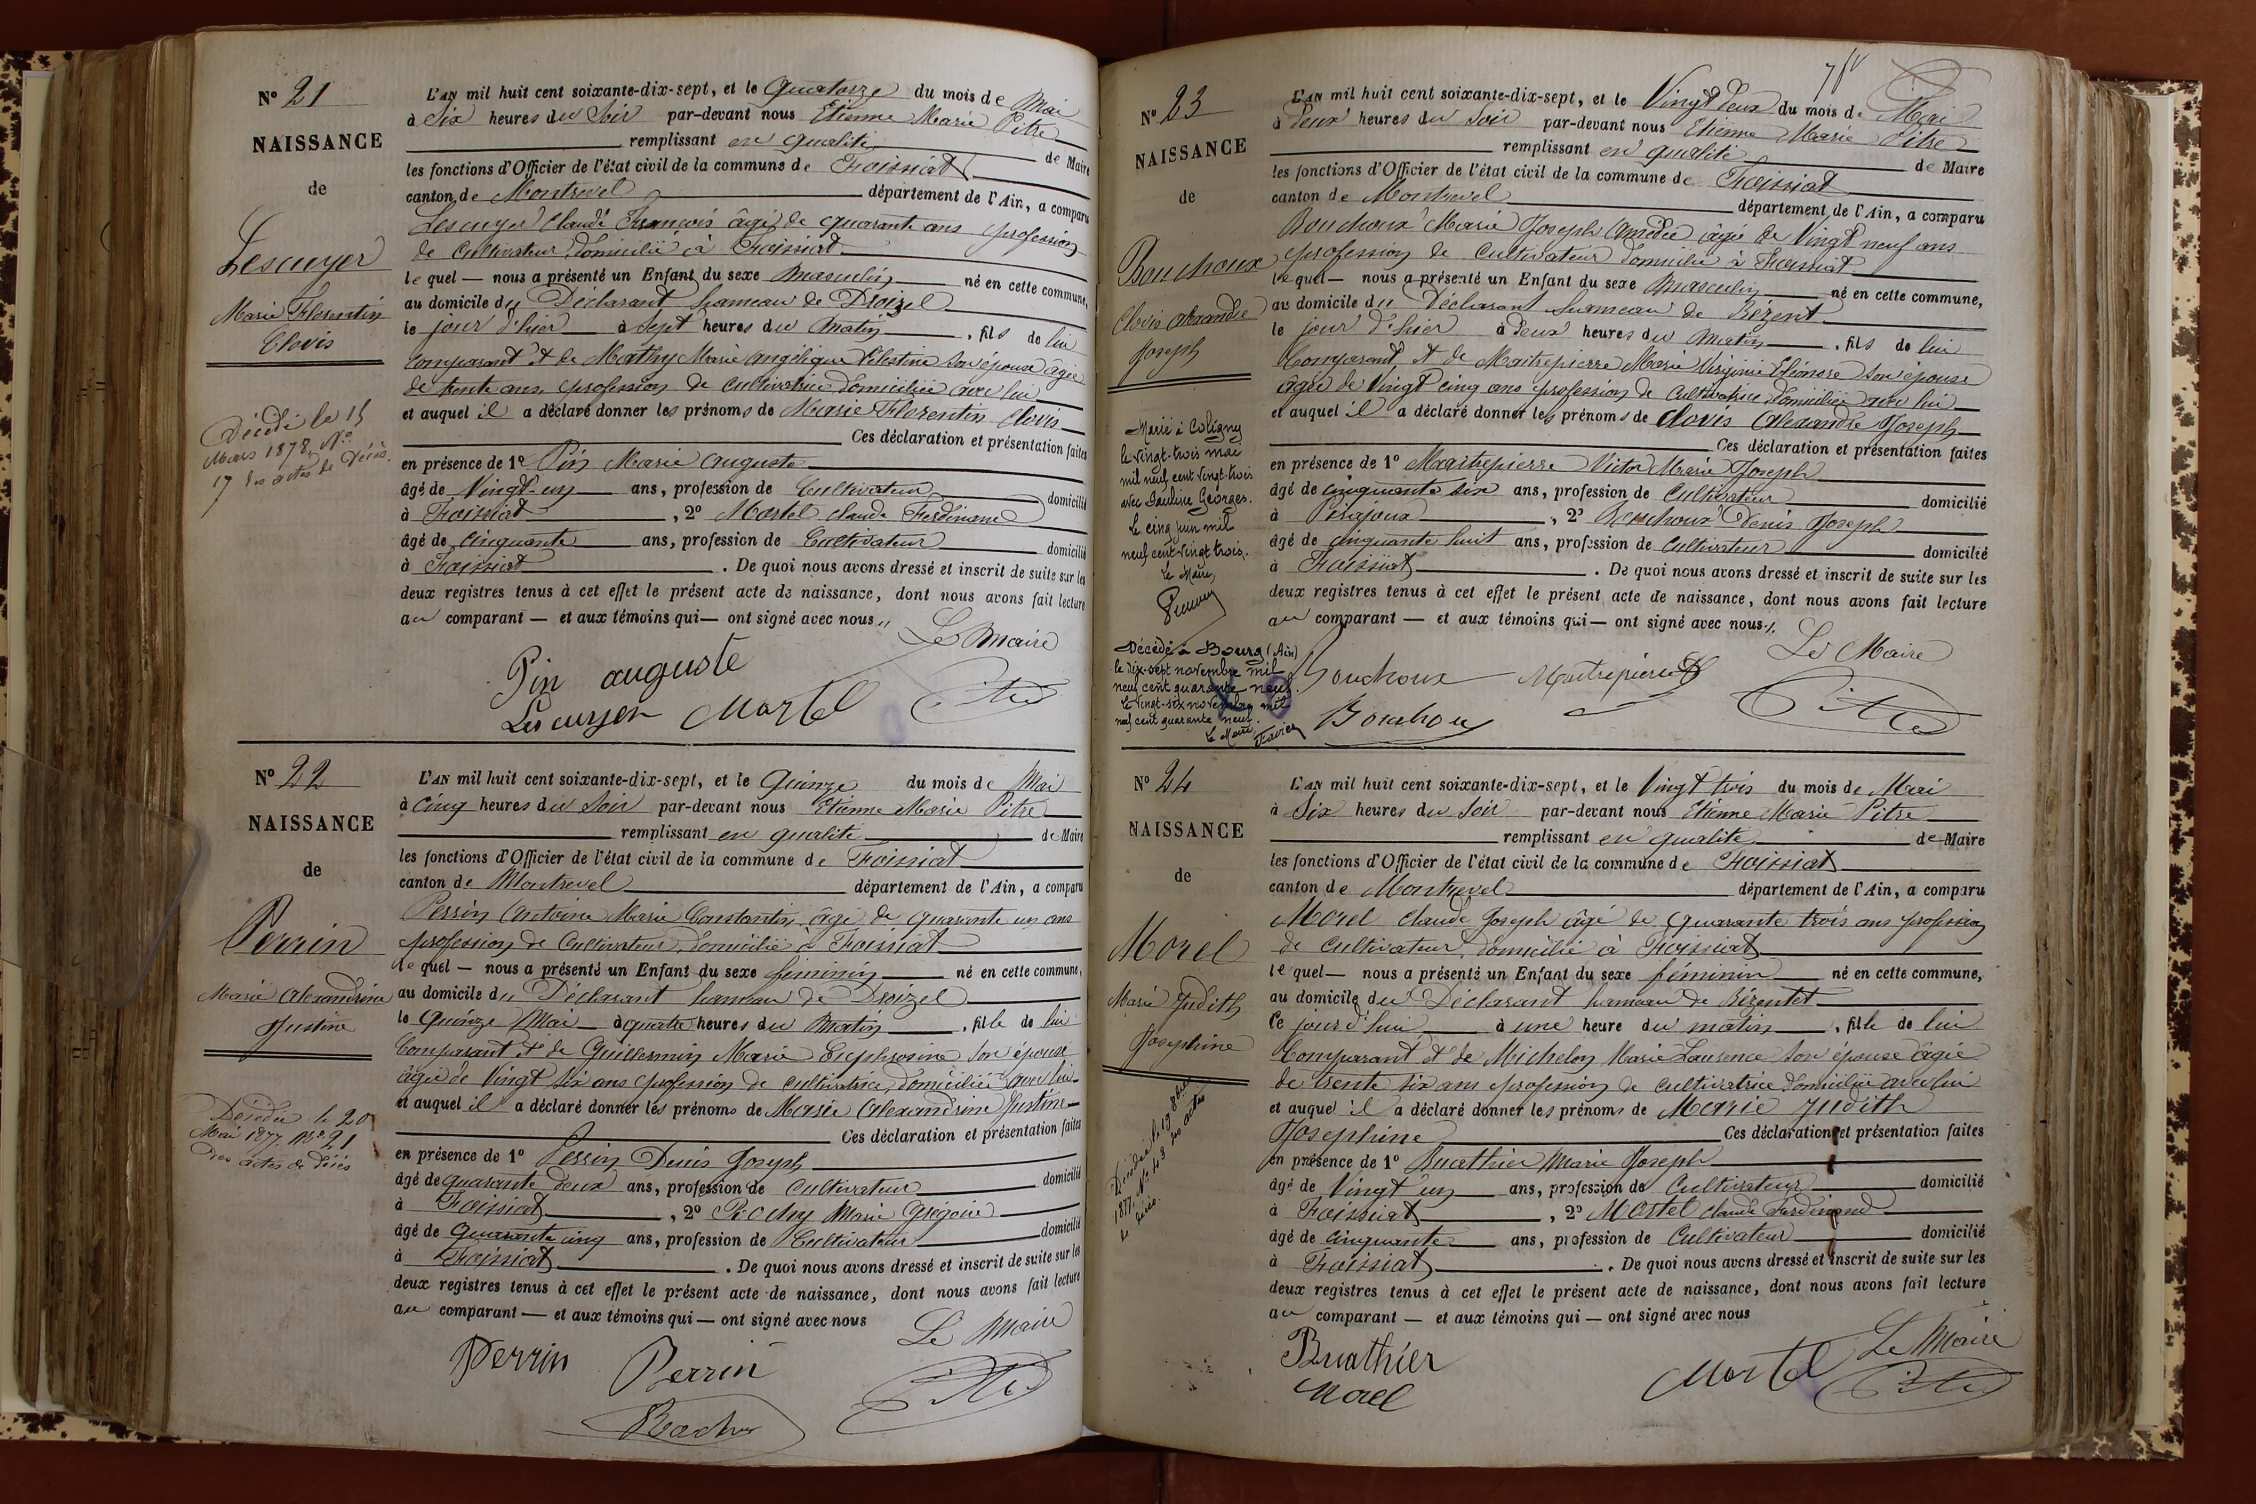 N° 21
NAISSANCE
de
Lescuyer
Marie Florentin
Clovis
Décédé le 15
Mars 1878, N°
17 des actes de Décès.
L'AN mil huit cent soixante-dix-sept, et le quatorze du mois de Mai
à Six heures du Soir par-devant nous Etienne Marie Pitre
remplissant en qualité de Maire
les fonctions d'Officier de l'état civil de la commune de Foissiat
canton de Montrevel département de l'Ain, a comparu
Lescuyer Claude François âgé de quarante ans profession
de Cultivateur domicilié à Foissiat
le quel — nous a présenté un Enfant du sexe Masculin né en cette commune,
au domicile du Déclarant hameau de Droizel
le jour d'hier à Sept heures du Matin, fils de lui
Comparant et de Mathy Marie Angélique Célestine son épouse âgée
de trente ans, profession de cultivatrice domiciliée avec lui
et auquel il a déclaré donner les prénoms de Marie Florentin Clovis
Ces déclaration et présentation faites
en présence de 1° Pin Marie Auguste
âgé de Vingt-un ans, profession de Cultivateur domicilié
à Foissiat, 2° Martel Claude Ferdinand
âgé de Cinquante ans, profession de Cultivateur domicilié
à Foissiat. De quoi nous avons dressé et inscrit de suite sur les
deux registres tenus à cet effet le présent acte de naissance, dont nous avons fait lecture
au comparant — et aux témoins qui — ont signé avec nous
Le Maire
Pin auguste
Lescuyer Martel Pitre
N° 22
NAISSANCE
de
Perrin
Marie Alexandrine
Justine
Décédée le 20
Mai 1877 N° 21
des actes de Décès
L'AN mil huit cent soixante-dix-sept, et le Quinze du mois de Mai
à Cinq heures du Soir par-devant nous Etienne Marie Pitre
remplissant en qualité de Maire
les fonctions d'Officier de l'état civil de la commune de Foissiat
canton de Montrevel département de l'Ain, a comparu
Perrin Antoine Marie Constantin âgé de quarante un ans
profession de Cultivateur domicilié à Foissiat
le quel — nous a présenté un Enfant du sexe féminin né en cette commune,
au domicile du Déclarant hameau de Droizel
le Quinze Mai à quatre heures du Matin, fille de lui
Comparant et de Guillermin Marie Euphrosine son épouse
âgée de Vingt six ans profession de cultivatrice domiciliée avec lui
et auquel il a déclaré donner les prénoms de Marie Alexandrine Justine
Ces déclaration et présentation faites
en présence de 1° Perrin Denis Joseph
âgé de quarante deux ans, profession de Cultivateur domicilié
à Foissiat, 2° Rochy Marie Grégoire
âgé de Quarante cinq ans, profession de Cultivateur domicilié
à Foissiat. De quoi nous avons dressé et inscrit de suite sur les
deux registres tenus à cet effet le présent acte de naissance, dont nous avons fait lecture
au comparant — et aux témoins qui — ont signé avec nous
Le Maire
Perrin Perrin Pitre
N° 23
NAISSANCE
de
Bouchoux
Clovis Alexandre
Joseph
Marié à Coligny
le vingt-trois mai
mil neuf cent vingt-trois
avec Pauline Georges.
Le cinq juin mil
neuf cent vingt trois.
Le Maire,
Décédé à Bourg (Ain)
le dix-sept novembre mil
neuf cent quarante neuf.
Le vingt-six novembre mil
neuf cent quarante neuf.
Le Maire
L'AN mil huit cent soixante-dix-sept, et le Vingt deux du mois de Mai
à Deux heures du Soir par-devant nous Etienne Marie Pitre
remplissant en qualité de Maire
les fonctions d'Officier de l'état civil de la commune de Foissiat
canton de Montrevel département de l'Ain, a comparu
Bouchoux Marie Joseph Amédée âgé de Vingt neuf ans
profession de Cultivateur domicilié à Foissiat
le quel — nous a présenté un Enfant du sexe Masculin né en cette commune,
au domicile du Déclarant hameau de Bézent
le jour d'hier à Deux heures du Matin, fils de lui
Comparant et de Maitrepierre Marie Virginie Eléonore son épouse
âgée de Vingt cinq ans profession de Cultivatrice domiciliée avec lui
et auquel il a déclaré donner les prénoms de Clovis Alexandre Joseph
Ces déclaration et présentation faites
en présence de 1° Maitrepierre Victor Marie Joseph
âgé de cinquante six ans, profession de Cultivateur domicilié
à Pirajoux, 2° Bouchoux Denis Joseph
âgé de Cinquante huit ans, profession de Cultivateur domicilié
à Foissiat. De quoi nous avons dressé et inscrit de suite sur les
deux registres tenus à cet effet le présent acte de naissance, dont nous avons fait lecture
au comparant — et aux témoins qui — ont signé avec nous
Le Maire
Bouchoux Maitrepierre Pitre
Bouchoux
N° 24
NAISSANCE
de
Morel
Marie Judith
Josephine
Décédée le 19 8bre
1877 N° 43 des actes
de Décès.
L'AN mil huit cent soixante-dix-sept, et le Vingt trois du mois de Mai
à Six heures du Soir par-devant nous Etienne Marie Pitre
remplissant en qualité de Maire
les fonctions d'Officier de l'état civil de la commune de Foissiat
canton de Montrevel département de l'Ain, a comparu
Morel Claude Joseph âgé de Quarante trois ans profession
de Cultivateur domicilié à Foissiat
le quel — nous a présenté un Enfant du sexe féminin né en cette commune,
au domicile du Déclarant hameau de Bézentet
Ce jour d'hui à une heure du matin, fille de lui
Comparant et de Michelon Marie Laurence son épouse âgée
de trente six ans profession de cultivatrice domiciliée avec lui
et auquel il a déclaré donner les prénoms de Marie Judith
Josephine Ces déclaration et présentation faites
en présence de 1° Buathier Marie Joseph
âgé de Vingt un ans, profession de Cultivateur domicilié
à Foissiat, 2° Martel Claude Ferdinand
âgé de Cinquante ans, profession de Cultivateur domicilié
à Foissiat. De quoi nous avons dressé et inscrit de suite sur les
deux registres tenus à cet effet le présent acte de naissance, dont nous avons fait lecture
au comparant — et aux témoins qui — ont signé avec nous
Le Maire
Buathier Martel Pitre
Morel